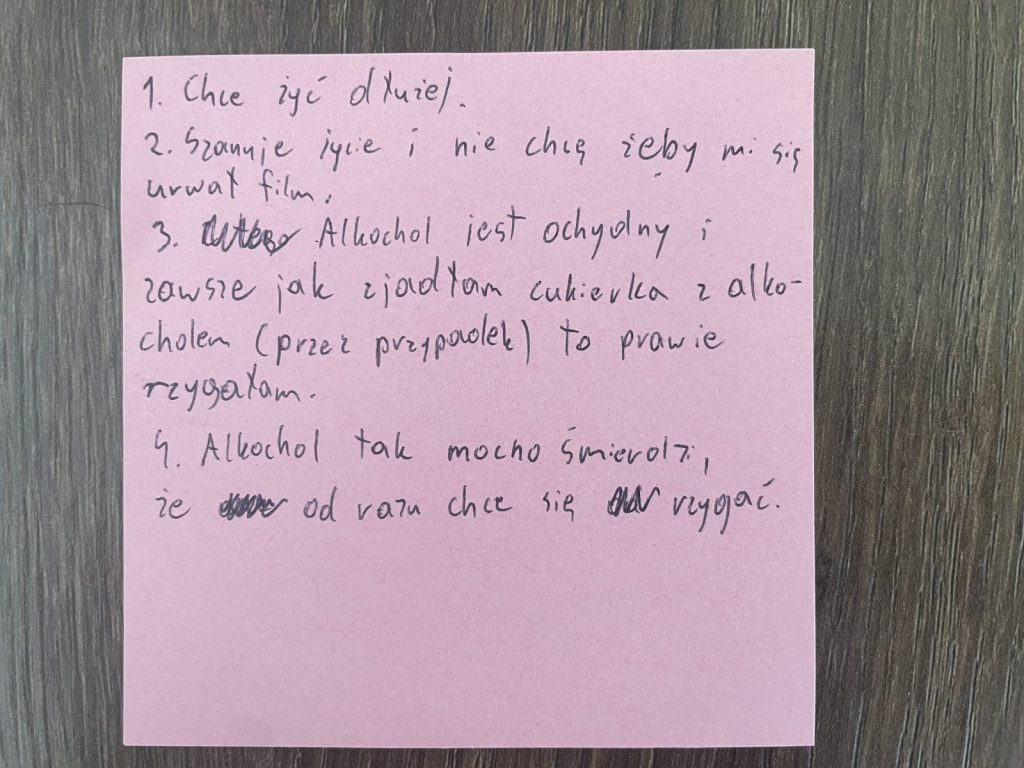 1. Chce żyć dłużej.
2. Szanuje życie i nie chcę żeby mi się
urwał film.
3. Alkochol jest ochydny i
zawsze jak zjadłam cukierka z alko-
cholem (przez przypadek) to prawie
rzygałam.
4. Alkochol tak mocno śmierdzi,
że od razu chce się rzygać.